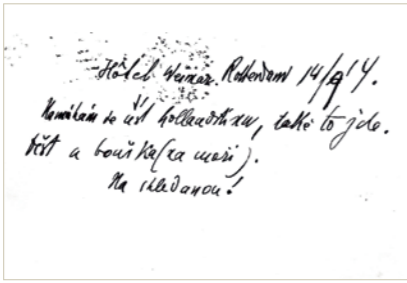 Hôtel Weimar. Rotterdam 14/9 14.
Namáhám se učit hollandštinu, také to jde.
Déšť a bouřka (na moři).
Na shledanou!